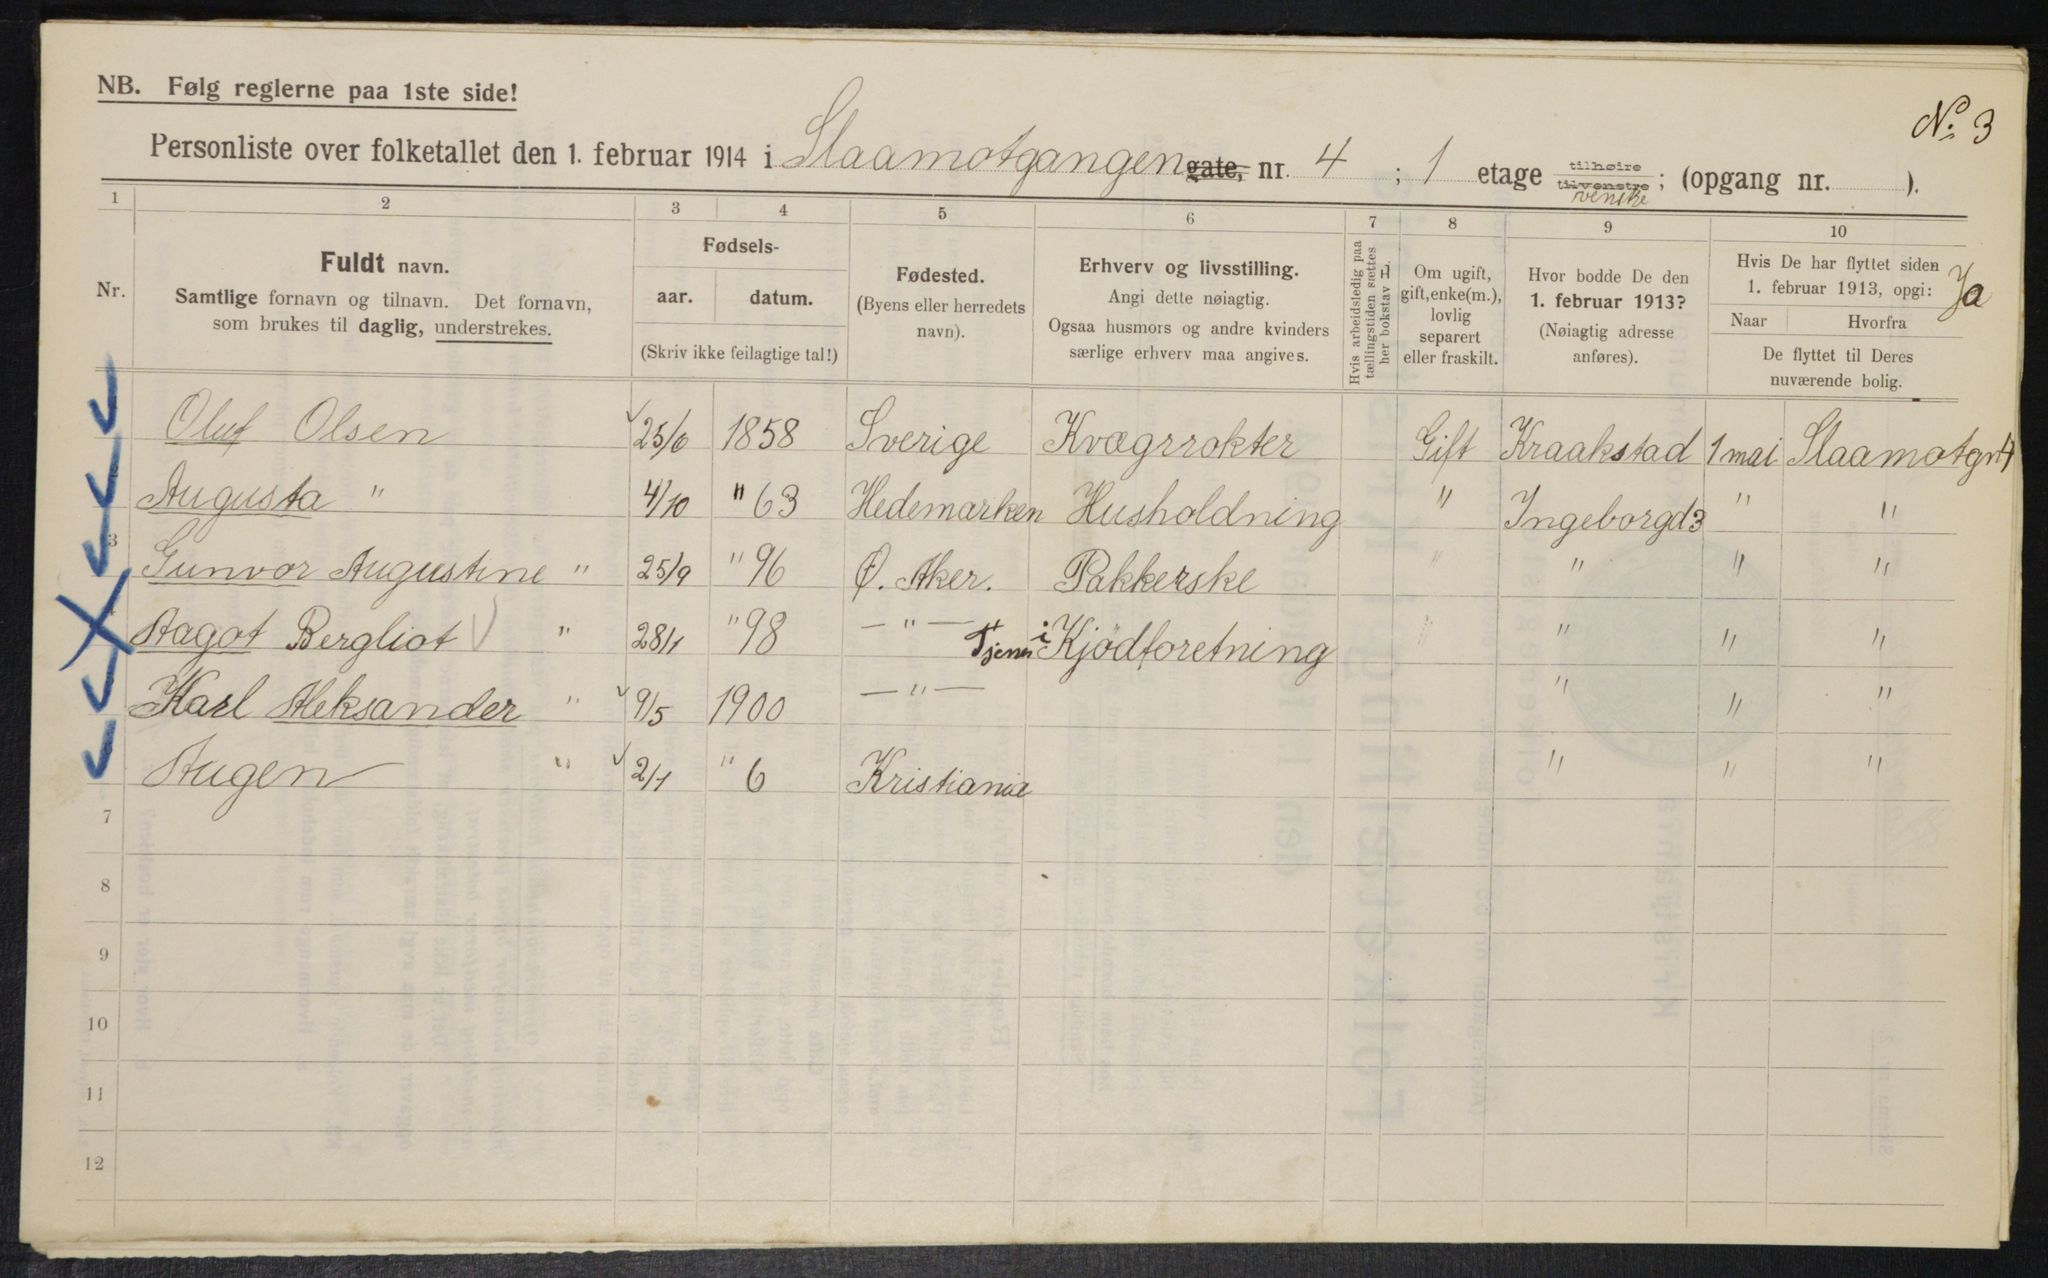 NB. Følg reglerne paa 1ste side!
No. 3
Personliste over folketallet den 1. februar 1914 i Slaamotgangen gate, nr. 4 ; 1 etage tilhøire tilvenstre venske ; (opgang nr. ).
1 2 3 4 5 6 7 8 9 10
Nr.
Fuldt navn.
Samtlige fornavn og tilnavn. Det fornavn,
som brukes til daglig, understrekes.
Fødsels-
aar. datum.
(Skriv ikke feilagtige tal!)
Fødested.
(Byens eller herredets
navn).
Erhverv og livsstilling.
Angi dette nøiagtig.
Ogsaa husmors og andre kvinders
særlige erhverv maa angives.
Hvis arbeidsledig paa
tællingstiden sættes
her bokstav L.
Om ugift,
gift, enke(m.),
lovlig
separert
eller fraskilt.
Hvor bodde De den
1. februar 1913?
(Nøiagtig adresse
anføres).
Hvis De har flyttet siden
1. februar 1913, opgi: Ja
Naar Hvorfra
De flyttet til Deres
nuværende bolig.
Oluf Olsen 25/6 1858 Sverige Kvægrrokter Gift Kraakstad 1 mai Slaamotgn4
Augusta " 4/10 " 63 Hedemarken Husholdning " Ingeborgd3 " "
3 Gunvor Augustine " 25/9 " 96 Ø. Aker. Pakkerske " " " "
4 Aagot Bergliot " 28/1 " 98 — " — Tjener i Kjödforetning " " " "
Karl Aleksander " 9/5 1900 — " — " " "
Augen " 2/1 " 6 Kristiania " " "
7
8
9
10
11
12